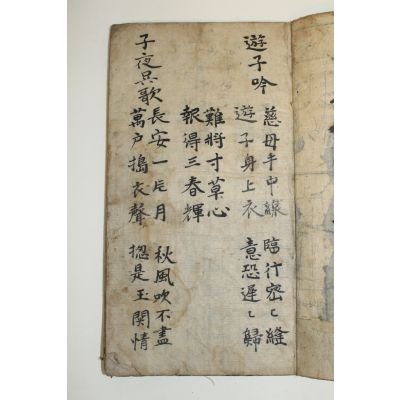 遊子吟
慈母手中線 臨行密〻縫
遊子身上衣 意恐遲〻歸
難將寸草心
報得三春輝
子夜呉歌
長安一片月 秋風吹不盡
萬户搗衣聲 揔是玉関情